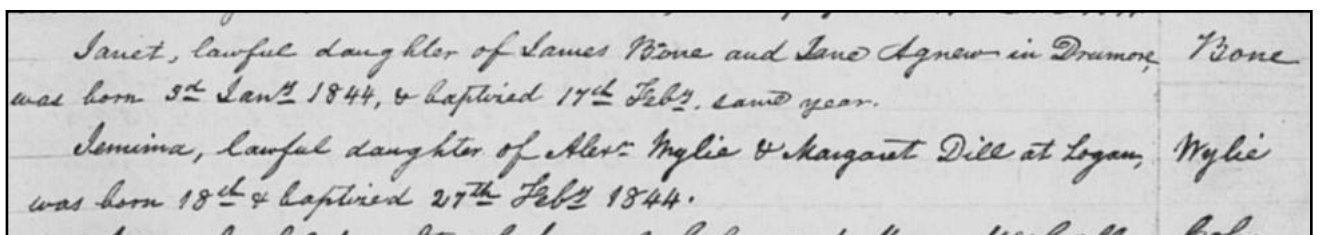 Janet, lawful daughter of James Bone and Jane Agnew in Drumore, Bone
was born 3d Jany 1844, & baptized 17th Feby. same year.
Jemima, lawful daughter of Alexr Wylie & Margaret Dill at Logan, Wylie
was born 18th & baptized 27th Feby 1844.